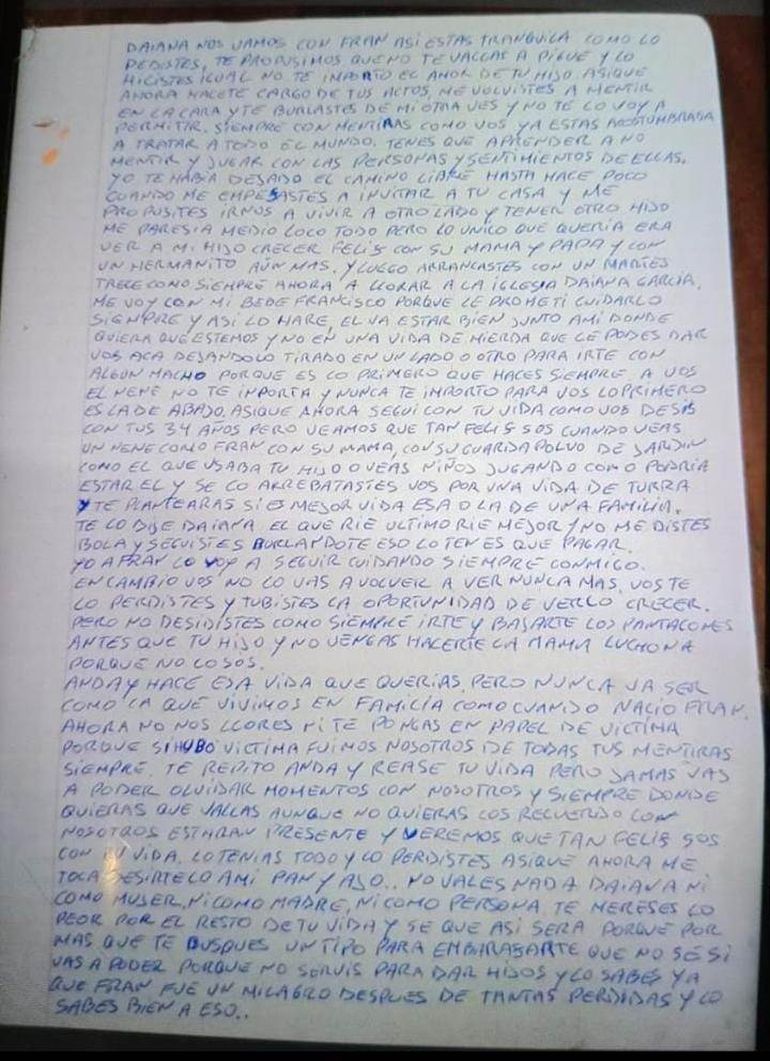 DAIANA NOS VAMOS CON FRAN ASI ESTAS TRANQUILA COMO LO
PEDISTES, TE PROPUSIMOS QUE NO TE VALLAS A PIGUE Y LO
HICISTES IGUAL NO TE INPORTO EL AMOR DE TU HIJO. ASIQUE
AHORA HACETE CARGO DE TUS ACTOS, ME VOLVISTES A MENTIR
EN LA CARA Y TE BURLASTES DE MI OTRA VES Y NO TE LO VOY A
PERMITIR. SIEMPRE CON MENTIRAS COMO VOS YA ESTAS ACOSTUMBRADA
A TRATAR A TODO EL MUNDO. TENES QUE APRENDER A NO
MENTIR Y JUGAR CON LAS PERSONAS Y SENTIMIENTOS DE ELLAS.
YO TE HABIA DEJADO EL CAMINO LIBRE HASTA HACE POCO
CUANDO ME EMPESASTES A INVITAR A TU CASA Y ME
PROPUSITES IRNOS A VIVIR A OTRO LADO Y TENER OTRO HIJO
ME PARESIA MEDIO LOCO TODO PERO LO UNICO QUE QUERIA ERA
VER A MI HIJO CRECER FELIS CON SU MAMA Y PAPA Y CON
UN HERMANITO AUN MAS. Y LUEGO ARRANCASTES CON UN MARTES
TRECE COMO SIEMPRE AHORA A LLORAR A LA IGLESIA DAIANA GARCIA.
ME VOY CON MI BEBE FRANCISCO PORQUE LE PROMETI CUIDARLO
SIEMPRE Y ASI LO HARE, EL VA ESTAR BIEN JUNTO AMI DONDE
QUIERA QUE ESTEMOS Y NO EN UNA VIDA DE MIERDA QUE LE PODES DAR
VOS ACA DEJANDOLO TIRADO EN UN LADO O OTRO PARA IRTE CON
ALGUN MACHO PORQUE ES LO PRIMERO QUE HACES SIEMPRE. A VOS
EL NENE NO TE INPORTA Y NUNCA TE IMPORTO PARA VOS LO PRIMERO
ES LA DE ABAJO. ASIQUE AHORA SEGUI CON TU VIDA COMO VOS DESIS
CON TUS 34 AÑOS PERO VEAMOS QUE TAN FELIS SOS CUANDO VEAS
UN NENE COMO FRAN CON SU MAMA, CON SU GUARDA POLVO DE JARDIN
COMO EL QUE USABA TU HIJO O VEAS NIÑOS JUGANDO COMO PODRIA
ESTAR EL Y SE LO ARREBATASTES VOS POR UNA VIDA DE TURRA
Y TE PLANTEARAS SI ES MEJOR VIDA ESA O LA DE UNA FAMILIA.
TE LO DIJE DAIANA EL QUE RIE ULTIMO RIE MEJOR Y NO ME DISTES
BOLA Y SEGUISTES BURLANDOTE ESO LO TENES QUE PAGAR.
YO A FRAN LO VOY A SEGUIR CUIDANDO SIEMPRE CONMIGO.
EN CAMBIO VOS NO LO VAS A VOLVER A VER NUNCA MAS. VOS TE
LO PERDISTES Y TUBISTES LA OPORTUNIDAD DE VERLO CRECER.
PERO NO DESIDISTES COMO SIEMPRE IRTE Y BAJARTE LOS PANTALONES
ANTES QUE TU HIJO Y NO VENGAS HACERTE LA MAMA LUCHONA
PORQUE NO LO SOS.
ANDA Y HACE ESA VIDA QUE QUERIAS. PERO NUNCA VA SER
COMO LA QUE VIVIMOS EN FAMILIA COMO CUANDO NACIO FRAN.
AHORA NO NOS LLORES NI TE PONGAS EN PAPEL DE VICTIMA
PORQUE SI HUBO VICTIMA FUIMOS NOSOTROS DE TODAS TUS MENTIRAS
SIEMPRE. TE REPITO ANDA Y REASE TU VIDA PERO JAMAS VAS
A PODER OLVIDAR MOMENTOS CON NOSOTROS Y SIEMPRE DONDE
QUIERAS QUE VALLAS AUNQUE NO QUIERAS LOS RECUERDO CON
NOSOTROS ESTARAN PRESENTE Y VEREMOS QUE TAN FELIS SOS
CON TU VIDA. LO TENIAS TODO Y LO PERDISTES ASIQUE AHORA ME
TOCA DESIRTELO AMI PAN Y AJO.. NO VALES NADA DAIANA NI
COMO MUJER, NI COMO MADRE, NI COMO PERSONA. TE MERESES LO
PEOR POR EL RESTO DE TU VIDA Y SE QUE ASI SERA PORQUE POR
MAS QUE TE BUSQUES UN TIPO PARA EMBARASARTE QUE NO SÉ SI
VAS A PODER PORQUE NO SERVIS PARA DAR HIJOS Y LO SABES YA
QUE FRAN FUE UN MILAGRO DESPUES DE TANTAS PERDIDAS Y LO
SABES BIEN A ESO..